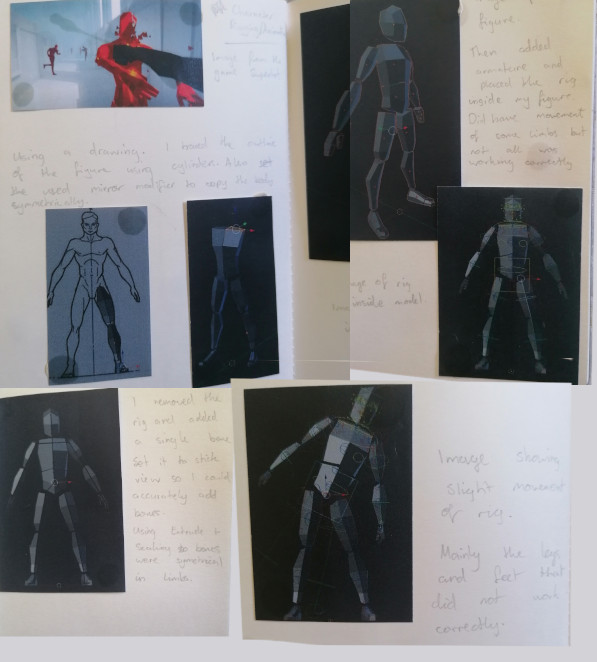 Character
Rigging
Image from the
game Superhot
Using a drawing. I traced the outline
of the figure using cylinders. Also set
the used mirror modifier to copy the body
symmetrically.
figure.
Then added
armature and
placed the rig
inside my figure.
Did have movement
of some limbs but
not all was
working correctly
of rig
inside model.
I removed the
rig and added
a single bone
Set it to stick
view so I could
accurately add
bones.
Using Extrude +
Scaling so bones
were symmetrical
in limbs.
Image showing
slight movement
of rig.
Mainly the legs
and feet that
did not work
correctly.